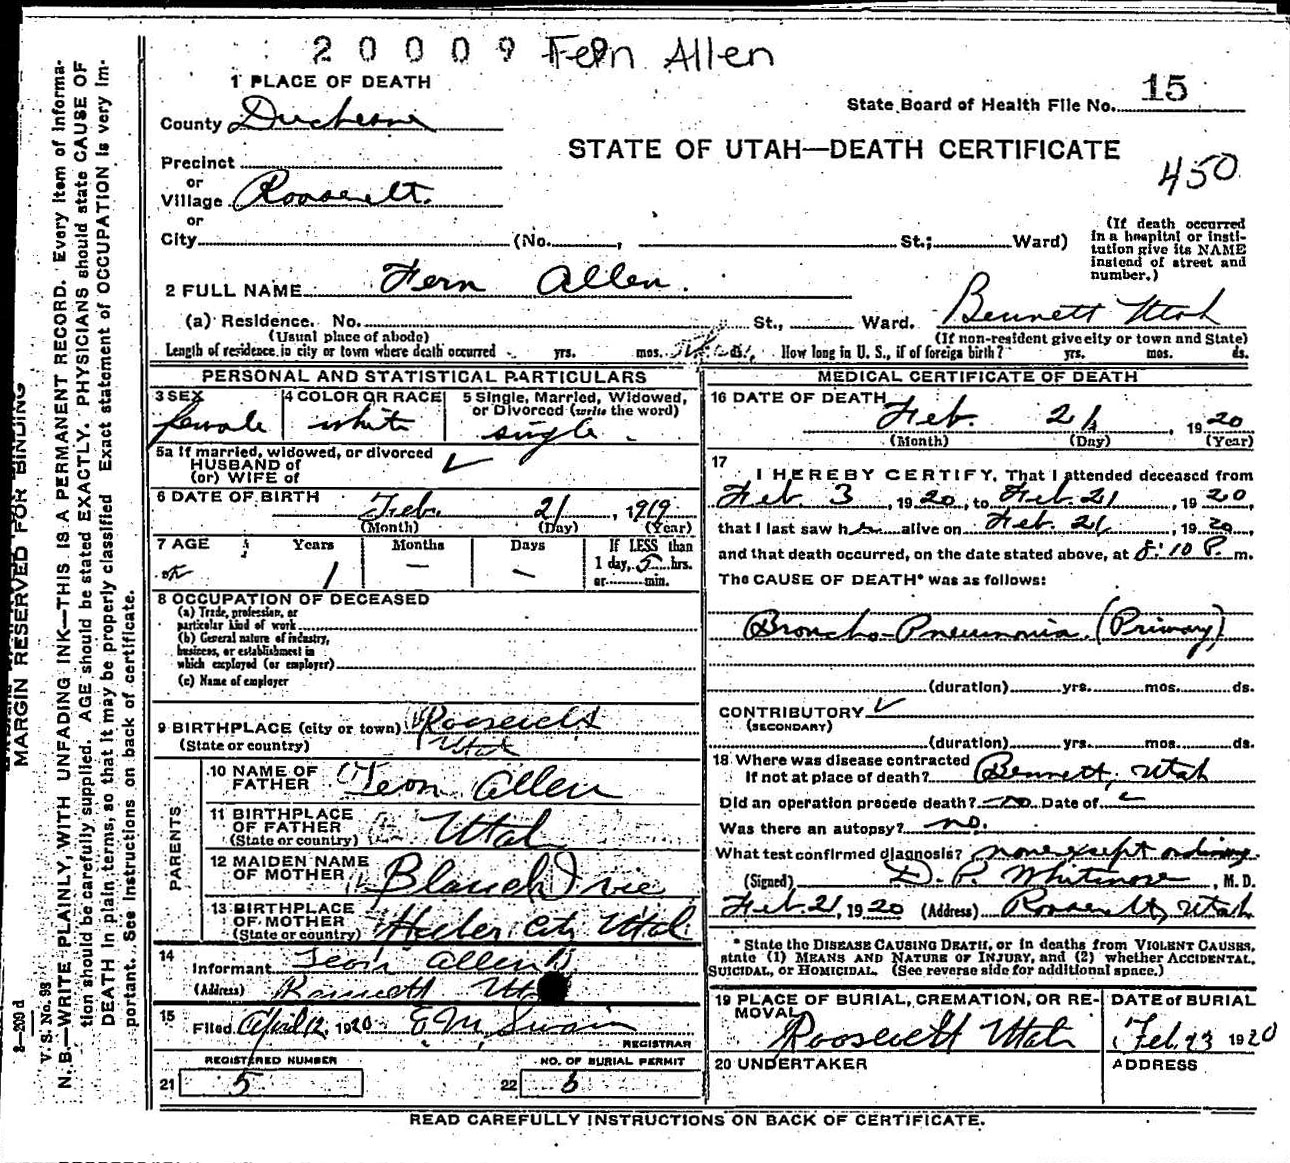 20009 Fern Allen
1 PLACE OF DEATH
State Board of Health File No. 15
County Duchesne
STATE OF UTAH—DEATH CERTIFICATE
450
Precinct
or
Village Roosevelt.
or
City (No. , St.; Ward)
(If death occurred in a hospital or institution give its NAME instead of street and number.)
2 FULL NAME Fern Allen.
(a) Residence. No. St., Ward. Bennett Utah
(Usual place of abode) (If non-resident give city or town and State)
Length of residence in city or town where death occurred yrs. mos. How long in U. S., if of foreign birth? yrs. mos. ds.
PERSONAL AND STATISTICAL PARTICULARS
3 SEX female
4 COLOR OR RACE white
5 Single, Married, Widowed, or Divorced (write the word) single.
5a If married, widowed, or divorced
HUSBAND of
(or) WIFE of
6 DATE OF BIRTH Feb. 21, 1919
(Month) (Day) (Year)
7 AGE Years 1 Months — Days — If LESS than
1 day, 5 hrs.
or min.
8 OCCUPATION OF DECEASED
(a) Trade, profession, or
particular kind of work
(b) General nature of industry,
business, or establishment in
which employed (or employer)
(c) Name of employer
9 BIRTHPLACE (city or town) Roosevelt
(State or country) Utah
PARENTS
10 NAME OF FATHER Leon Allen
11 BIRTHPLACE OF FATHER (State or country) Utah
12 MAIDEN NAME OF MOTHER Blanch Ivie
13 BIRTHPLACE OF MOTHER (State or country) Heber City Utah
14 Informant Leon Allen
(Address) Utah
15 Filed April 12, 1920 E M Swain
REGISTRAR
REGISTERED NUMBER
21 5
NO. OF BURIAL PERMIT
22 5
MEDICAL CERTIFICATE OF DEATH
16 DATE OF DEATH Feb. 21, 1920
(Month) (Day) (Year)
17 I HEREBY CERTIFY, That I attended deceased from
Feb. 3, 1920, to Feb. 21, 1920,
that I last saw her alive on Feb. 21, 1920,
and that death occurred, on the date stated above, at 8:10 P. m.
The CAUSE OF DEATH* was as follows:
Broncho-Pneumonia. (Primary)
(duration) yrs. mos. ds.
CONTRIBUTORY
(SECONDARY)
(duration) yrs. mos. ds.
18 Where was disease contracted
If not at place of death? Bennett, Utah
Did an operation precede death? no Date of
Was there an autopsy? no.
What test confirmed diagnosis? none except ordinary.
(Signed) D. P. Whitmore, M. D.
Feb. 21, 1920 (Address) Roosevelt, Utah
* State the DISEASE CAUSING DEATH, or in deaths from VIOLENT CAUSES,
state (1) MEANS AND NATURE OF INJURY, and (2) whether ACCIDENTAL,
SUICIDAL, or HOMICIDAL. (See reverse side for additional space.)
19 PLACE OF BURIAL, CREMATION, OR REMOVAL Roosevelt Utah
DATE of BURIAL Feb. 23 1920
20 UNDERTAKER
ADDRESS
READ CAREFULLY INSTRUCTIONS ON BACK OF CERTIFICATE.
MARGIN RESERVED FOR BINDING
V. S. No. 98
N. B.—WRITE PLAINLY, WITH UNFADING INK—THIS IS A PERMANENT RECORD. Every item of informa-
tion should be carefully supplied. AGE should be stated EXACTLY. PHYSICIANS should state CAUSE OF
DEATH in plain terms, so that it may be properly classified. Exact statement of OCCUPATION is very im-
portant. See instructions on back of certificate.